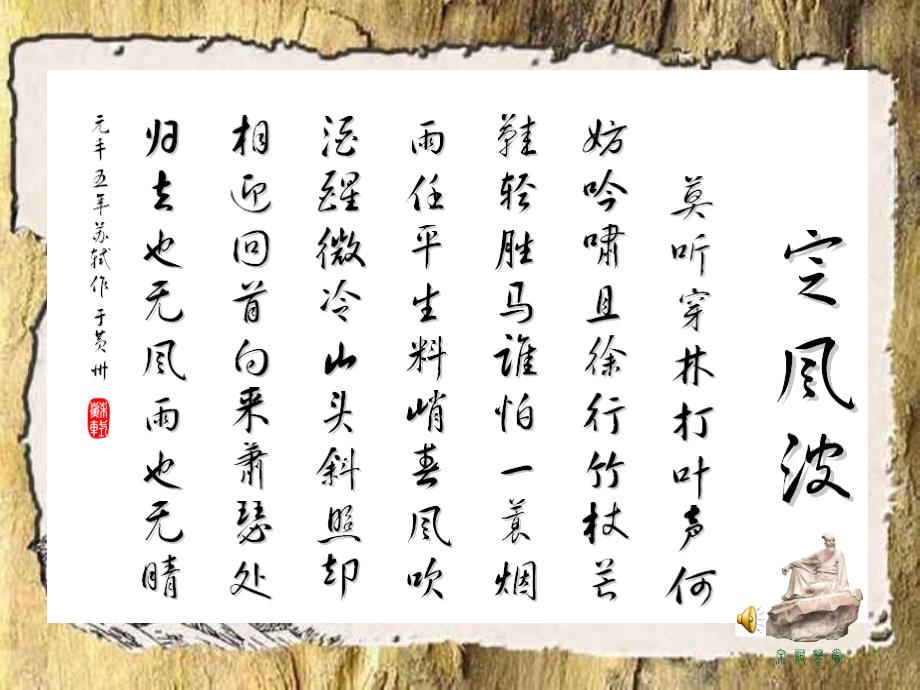 定风波
莫听穿林打叶声何
妨吟啸且徐行竹杖芒
鞋轻胜马谁怕一蓑烟
雨任平生料峭春风吹
酒醒微冷山头斜照却
相迎回首向来萧瑟处
归去也无风雨也无晴
元丰五年苏轼作于黄州